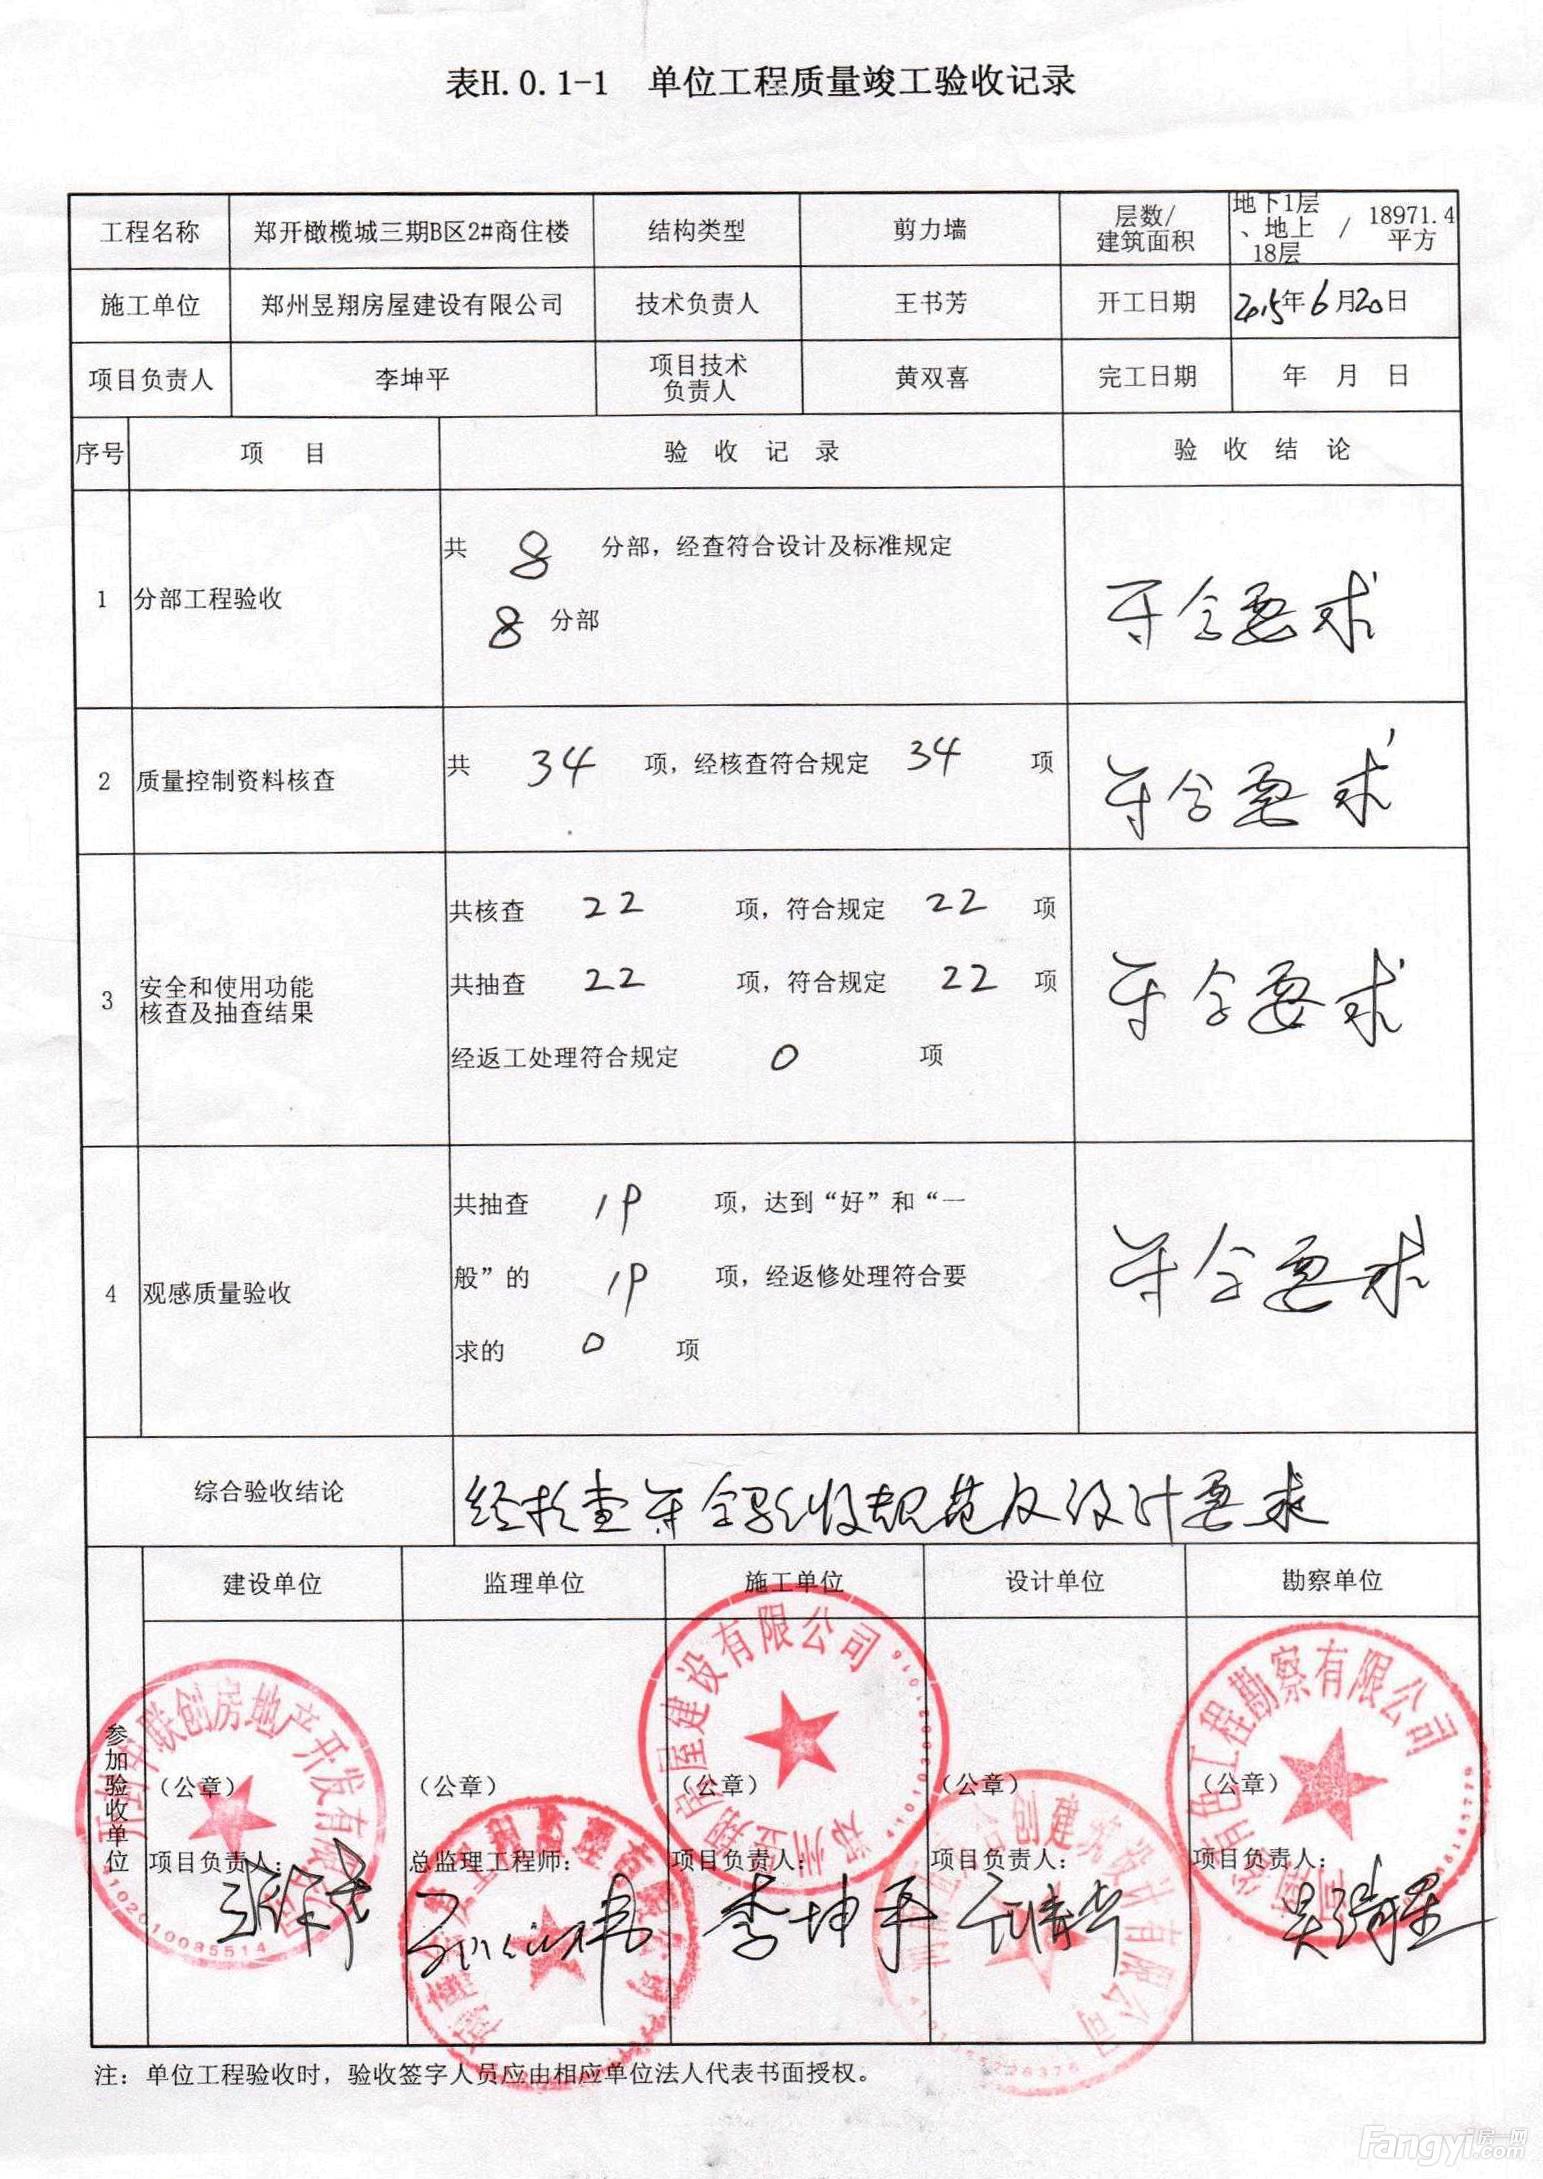 表H.0.1-1 单位工程质量竣工验收记录
工程名称 郑开橄榄城三期B区2#商住楼 结构类型 剪力墙 层数/建筑面积 地下1层、地上18层 / 18971.4平方
施工单位 郑州昱翔房屋建设有限公司 技术负责人 王书芳 开工日期 2015年6月20日
项目负责人 李坤平 项目技术负责人 黄双喜 完工日期 年 月 日
序号 项 目 验 收 记 录 验 收 结 论
1 分部工程验收
共 8 分部，经查符合设计及标准规定
8 分部
符合要求
2 质量控制资料核查
共 34 项，经核查符合规定 34 项
符合要求
3 安全和使用功能
核查及抽查结果
共核查 22 项，符合规定 22 项
共抽查 22 项，符合规定 22 项
经返工处理符合规定 0 项
符合要求
4 观感质量验收
共抽查 19 项，达到“好”和“一
般”的 19 项，经返修处理符合要
求的 0 项
符合要求
综合验收结论 经检查符合验收规范及设计要求
参加验收单位
建设单位 监理单位 施工单位 设计单位 勘察单位
（公章） （公章） （公章） （公章） （公章）
项目负责人： 总监理工程师： 项目负责人： 项目负责人： 项目负责人：
李坤平
联创房地产开发有限公司
房屋建设有限公司
创建筑设计有限公司
工程勘察有限公司
注：单位工程验收时，验收签字人员应由相应单位法人代表书面授权。
Fangyi房一网